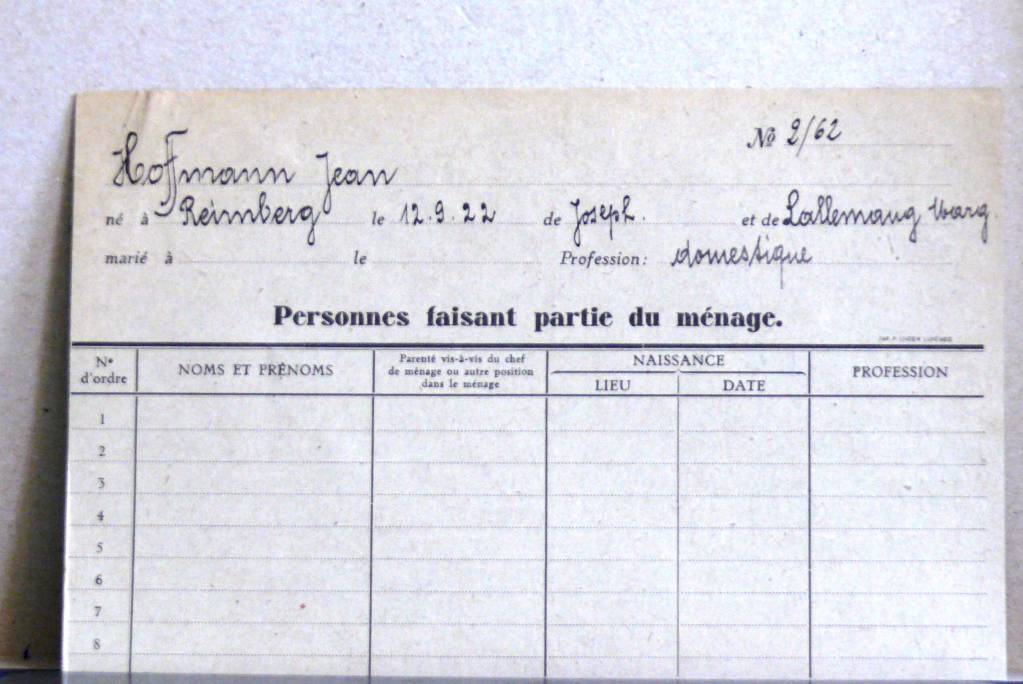 Nº 2/62
Hoffmann Jean
né à Reimberg le 12.9.22 de Joseph. et de Lallemang Marg.
marié à le Profession: domestique
Personnes faisant partie du ménage.
N° d'ordre
NOMS ET PRÉNOMS
Parenté vis-à-vis du chef
de ménage ou autre position
dans le ménage
NAISSANCE
LIEU DATE
PROFESSION
1
2
3
4
5
6
7
8